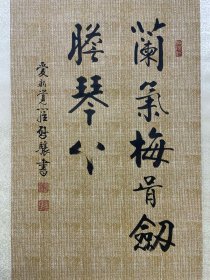 蘭氣梅骨劒
膽琴心
愛新覺羅啓驤書